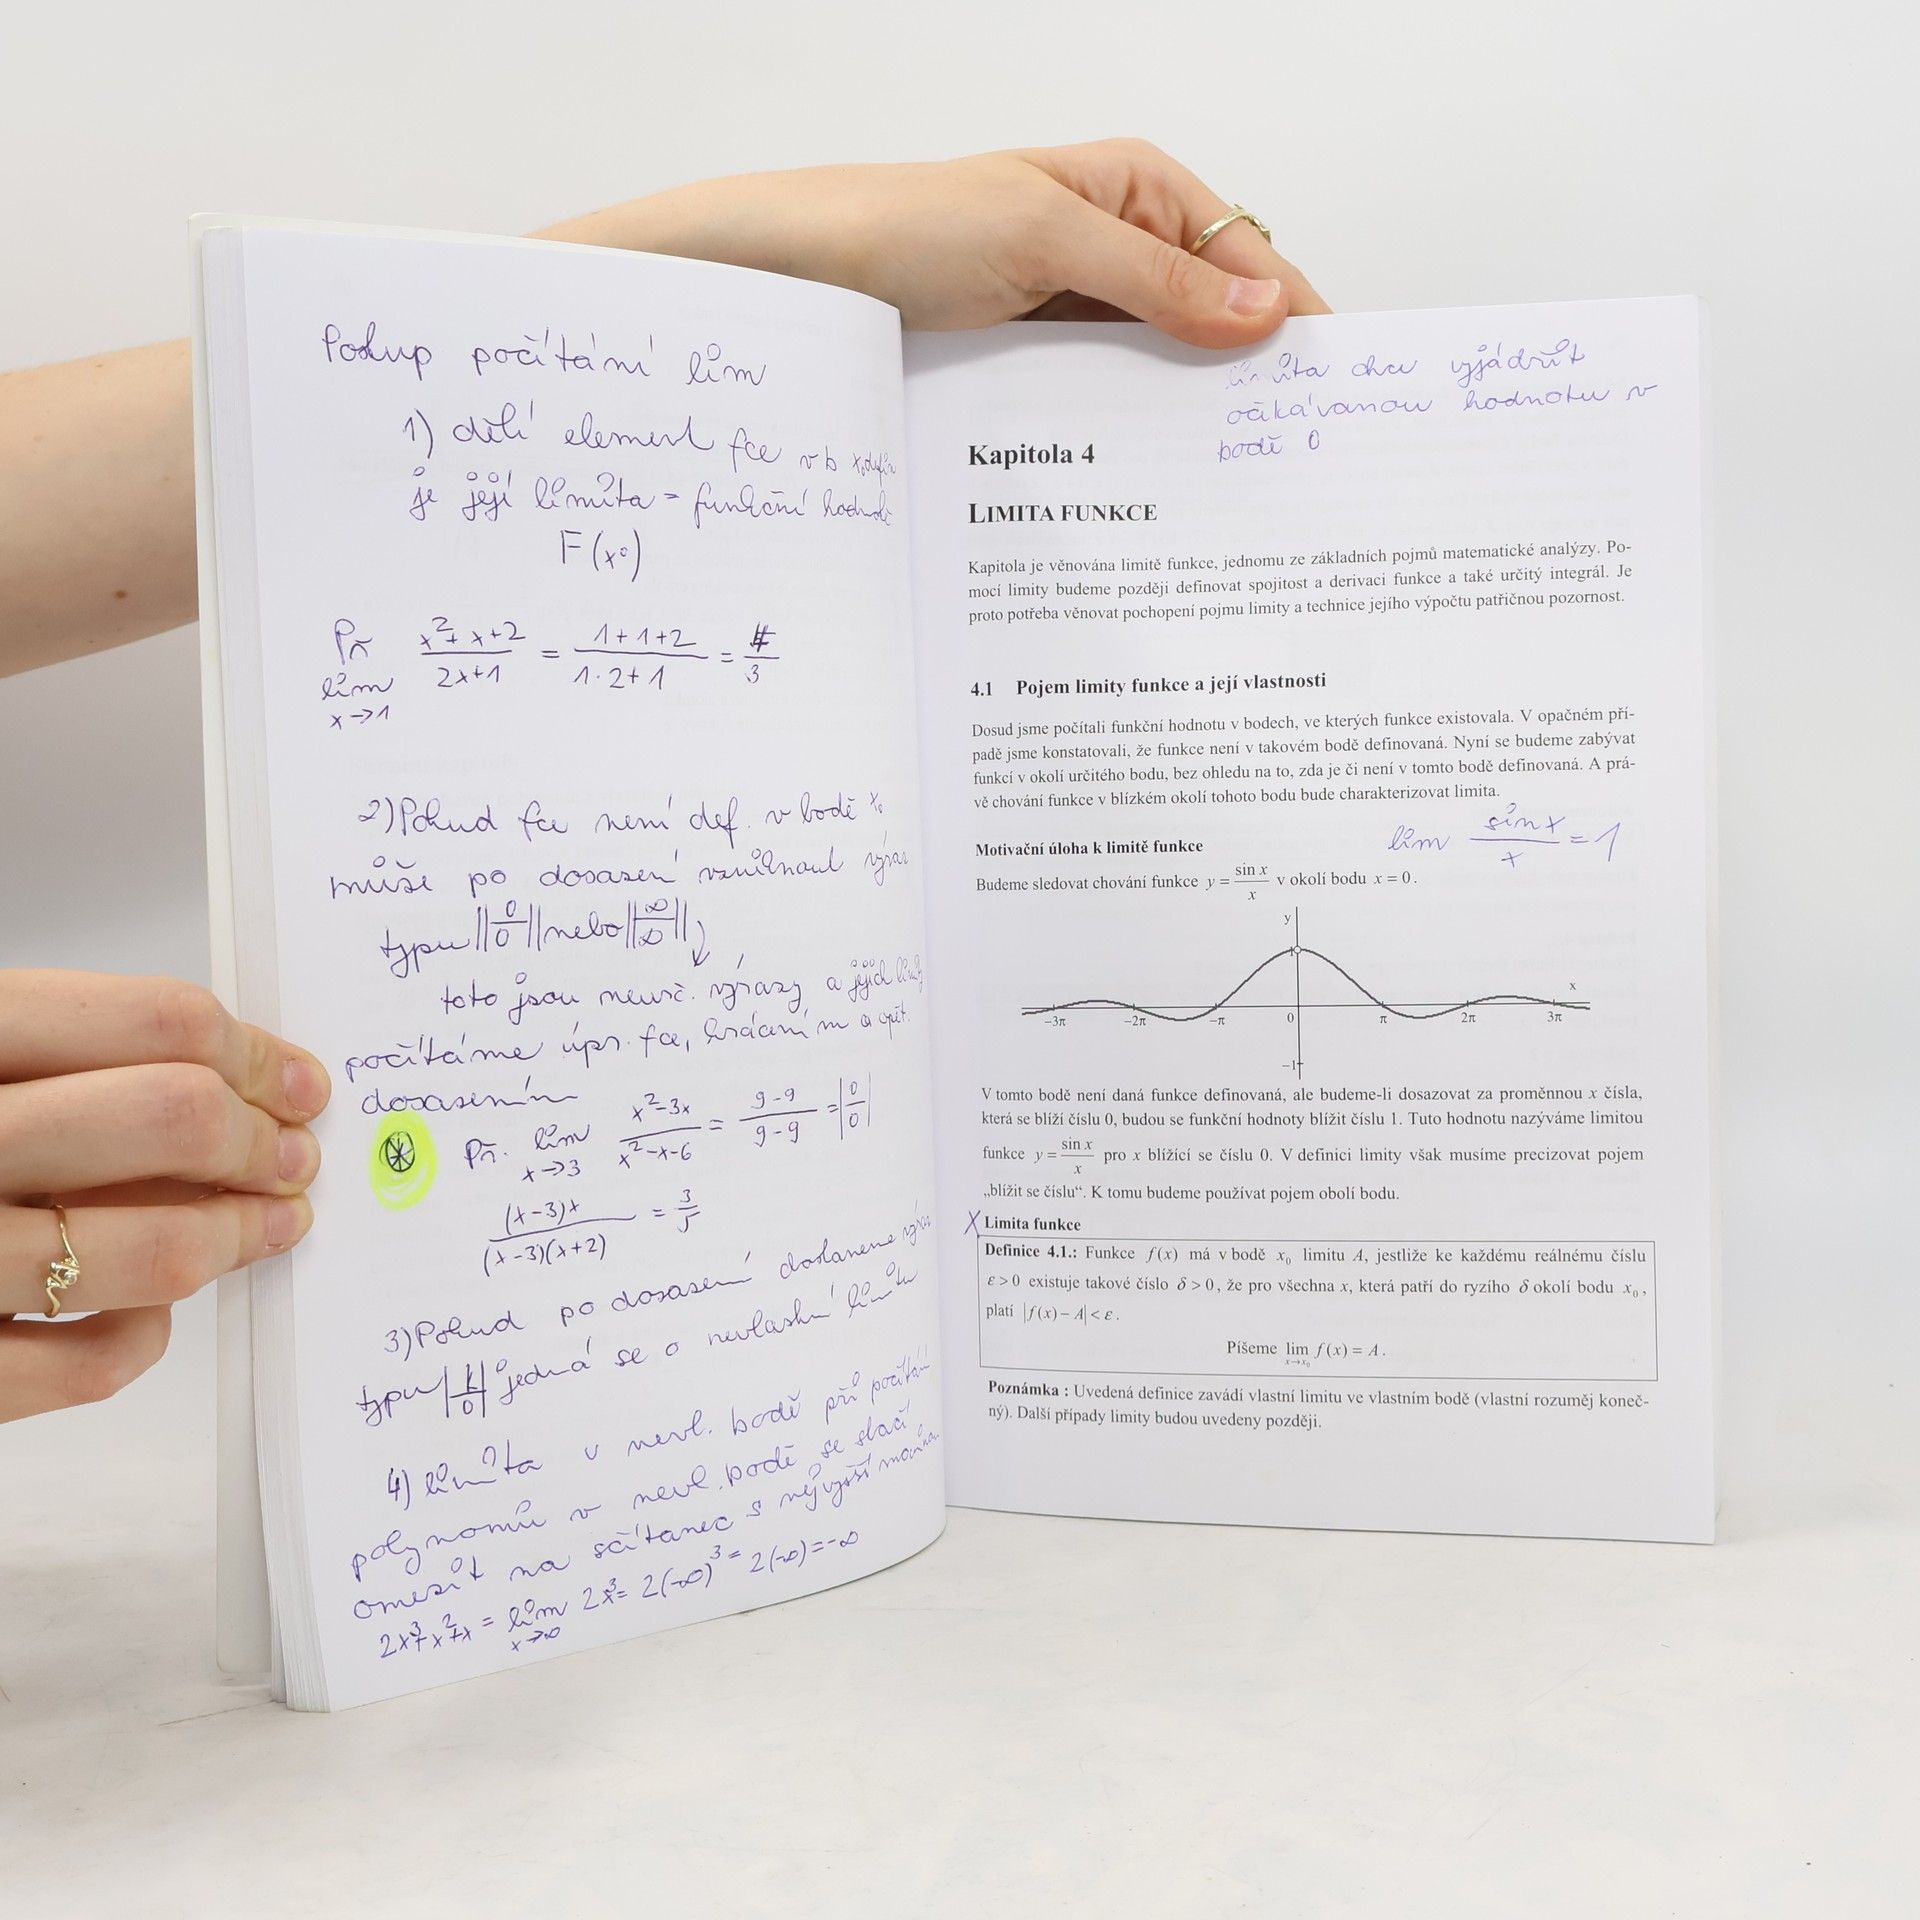 Postup počítání lim
1) dělí element fce v b
je její limita = funkční
F(x₀)
Př lim x→1 (x²+x+2)/(2x+1) = (1+1+2)/(1·2+1) = 4/3
2) Pokud fce není def. v bodě x₀
může po dosazení vzniknout výraz
typu ||0/0|| nebo ||∞/∞||
toto jsou neurč. výrazy a jejich limity
počítáme úpr. fce, krácením a opět.
dosazením
Př. lim x→3 (x²-3x)/(x²-x-6) = (9-9)/(9-9) = |0/0|
(x-3)x/((x-3)(x+2)) = 3/5
3) Pokud po dosazení dostaneme výraz
typu |k/0| jedná se o nevlastní limitu
4) limita v nevl. bodě při počítání
polynomů v nevl. bodě se stačí
omezit na sčítanec s nejvyšší mocninou
2x³+x²+x = lim x→∞ 2x³ = 2(-∞)³ = 2(-∞) = -∞
limita chce vyjádřit
očikávanou hodnotu v
bodě 0
Kapitola 4
LIMITA FUNKCE
Kapitola je věnována limitě funkce, jednomu ze základních pojmů matematické analýzy. Po-
mocí limity budeme později definovat spojitost a derivaci funkce a také určitý integrál. Je
proto potřeba věnovat pochopení pojmu limity a technice jejího výpočtu patřičnou pozornost.
4.1 Pojem limity funkce a její vlastnosti
Dosud jsme počítali funkční hodnotu v bodech, ve kterých funkce existovala. V opačném pří-
padě jsme konstatovali, že funkce není v takovém bodě definovaná. Nyní se budeme zabývat
funkcí v okolí určitého bodu, bez ohledu na to, zda je či není v tomto bodě definovaná. A prá-
vě chování funkce v blízkém okolí tohoto bodu bude charakterizovat limita.
lim sinx/x = 1
Motivační úloha k limitě funkce
Budeme sledovat chování funkce y = sin x/x v okolí bodu x = 0.
y
1
x
−3π −2π −π 0 π 2π 3π
−1
V tomto bodě není daná funkce definovaná, ale budeme-li dosazovat za proměnnou x čísla,
která se blíží číslu 0, budou se funkční hodnoty blížit číslu 1. Tuto hodnotu nazýváme limitou
funkce y = sin x/x pro x blížící se číslu 0. V definici limity však musíme precizovat pojem
„blížit se číslu“. K tomu budeme používat pojem obolí bodu.
X Limita funkce
Definice 4.1.: Funkce f(x) má v bodě x₀ limitu A, jestliže ke každému reálnému číslu
ε > 0 existuje takové číslo δ > 0, že pro všechna x, která patří do ryzího δ okolí bodu x₀,
platí |f(x) − A| < ε.
Píšeme lim x→x₀ f(x) = A.
Poznámka : Uvedená definice zavádí vlastní limitu ve vlastním bodě (vlastní rozuměj koneč-
ný). Další případy limity budou uvedeny později.